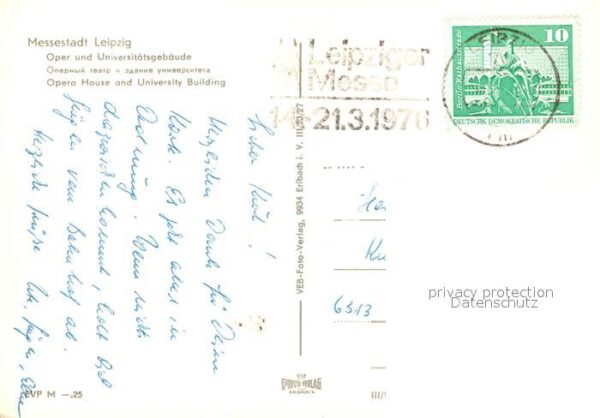 Messestadt Leipzig
Oper und Universitätsgebäude
Оперный театр и здание университета
Opera House and University Building
Leipziger
Messe
14.-21.3.1976
10
Berlin-Rathausstrasse
DEUTSCHE DEMOKRATISCHE REPUBLIK
Lieber Kurt!
Herzlichen Dank für Deine
Karte. Es geht alles in
Ordnung. Wenn nichts
dazwischenkommt, holt Dich
Jürgen vom Bahnhof ab.
Herzliche Grüße
VEB-Foto-Verlag, 9934 Erlbach i. V. III/23/27
Ku
6313
privacy protection
Datenschutz
FOTO VERLAG
EVP M —,25